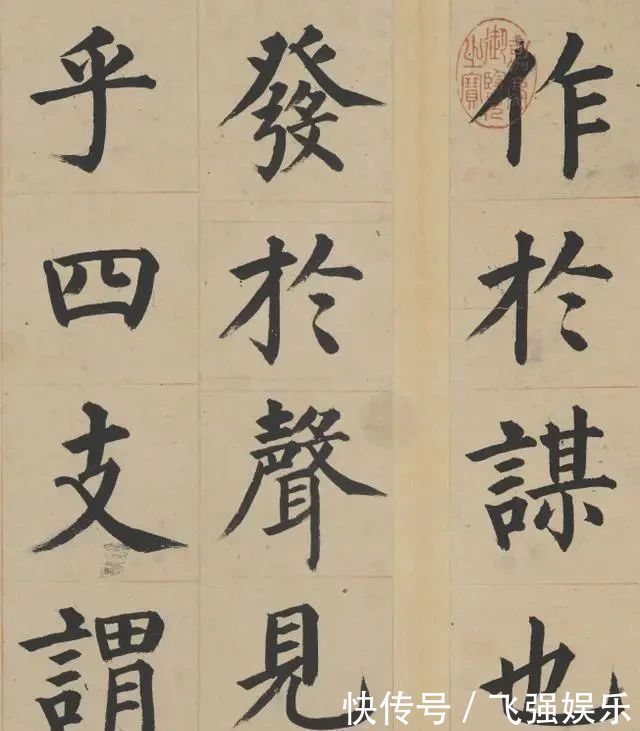 作於謀也
發於聲見
乎四支謂
嘉慶御覽之寶
快传号／飞强娱乐